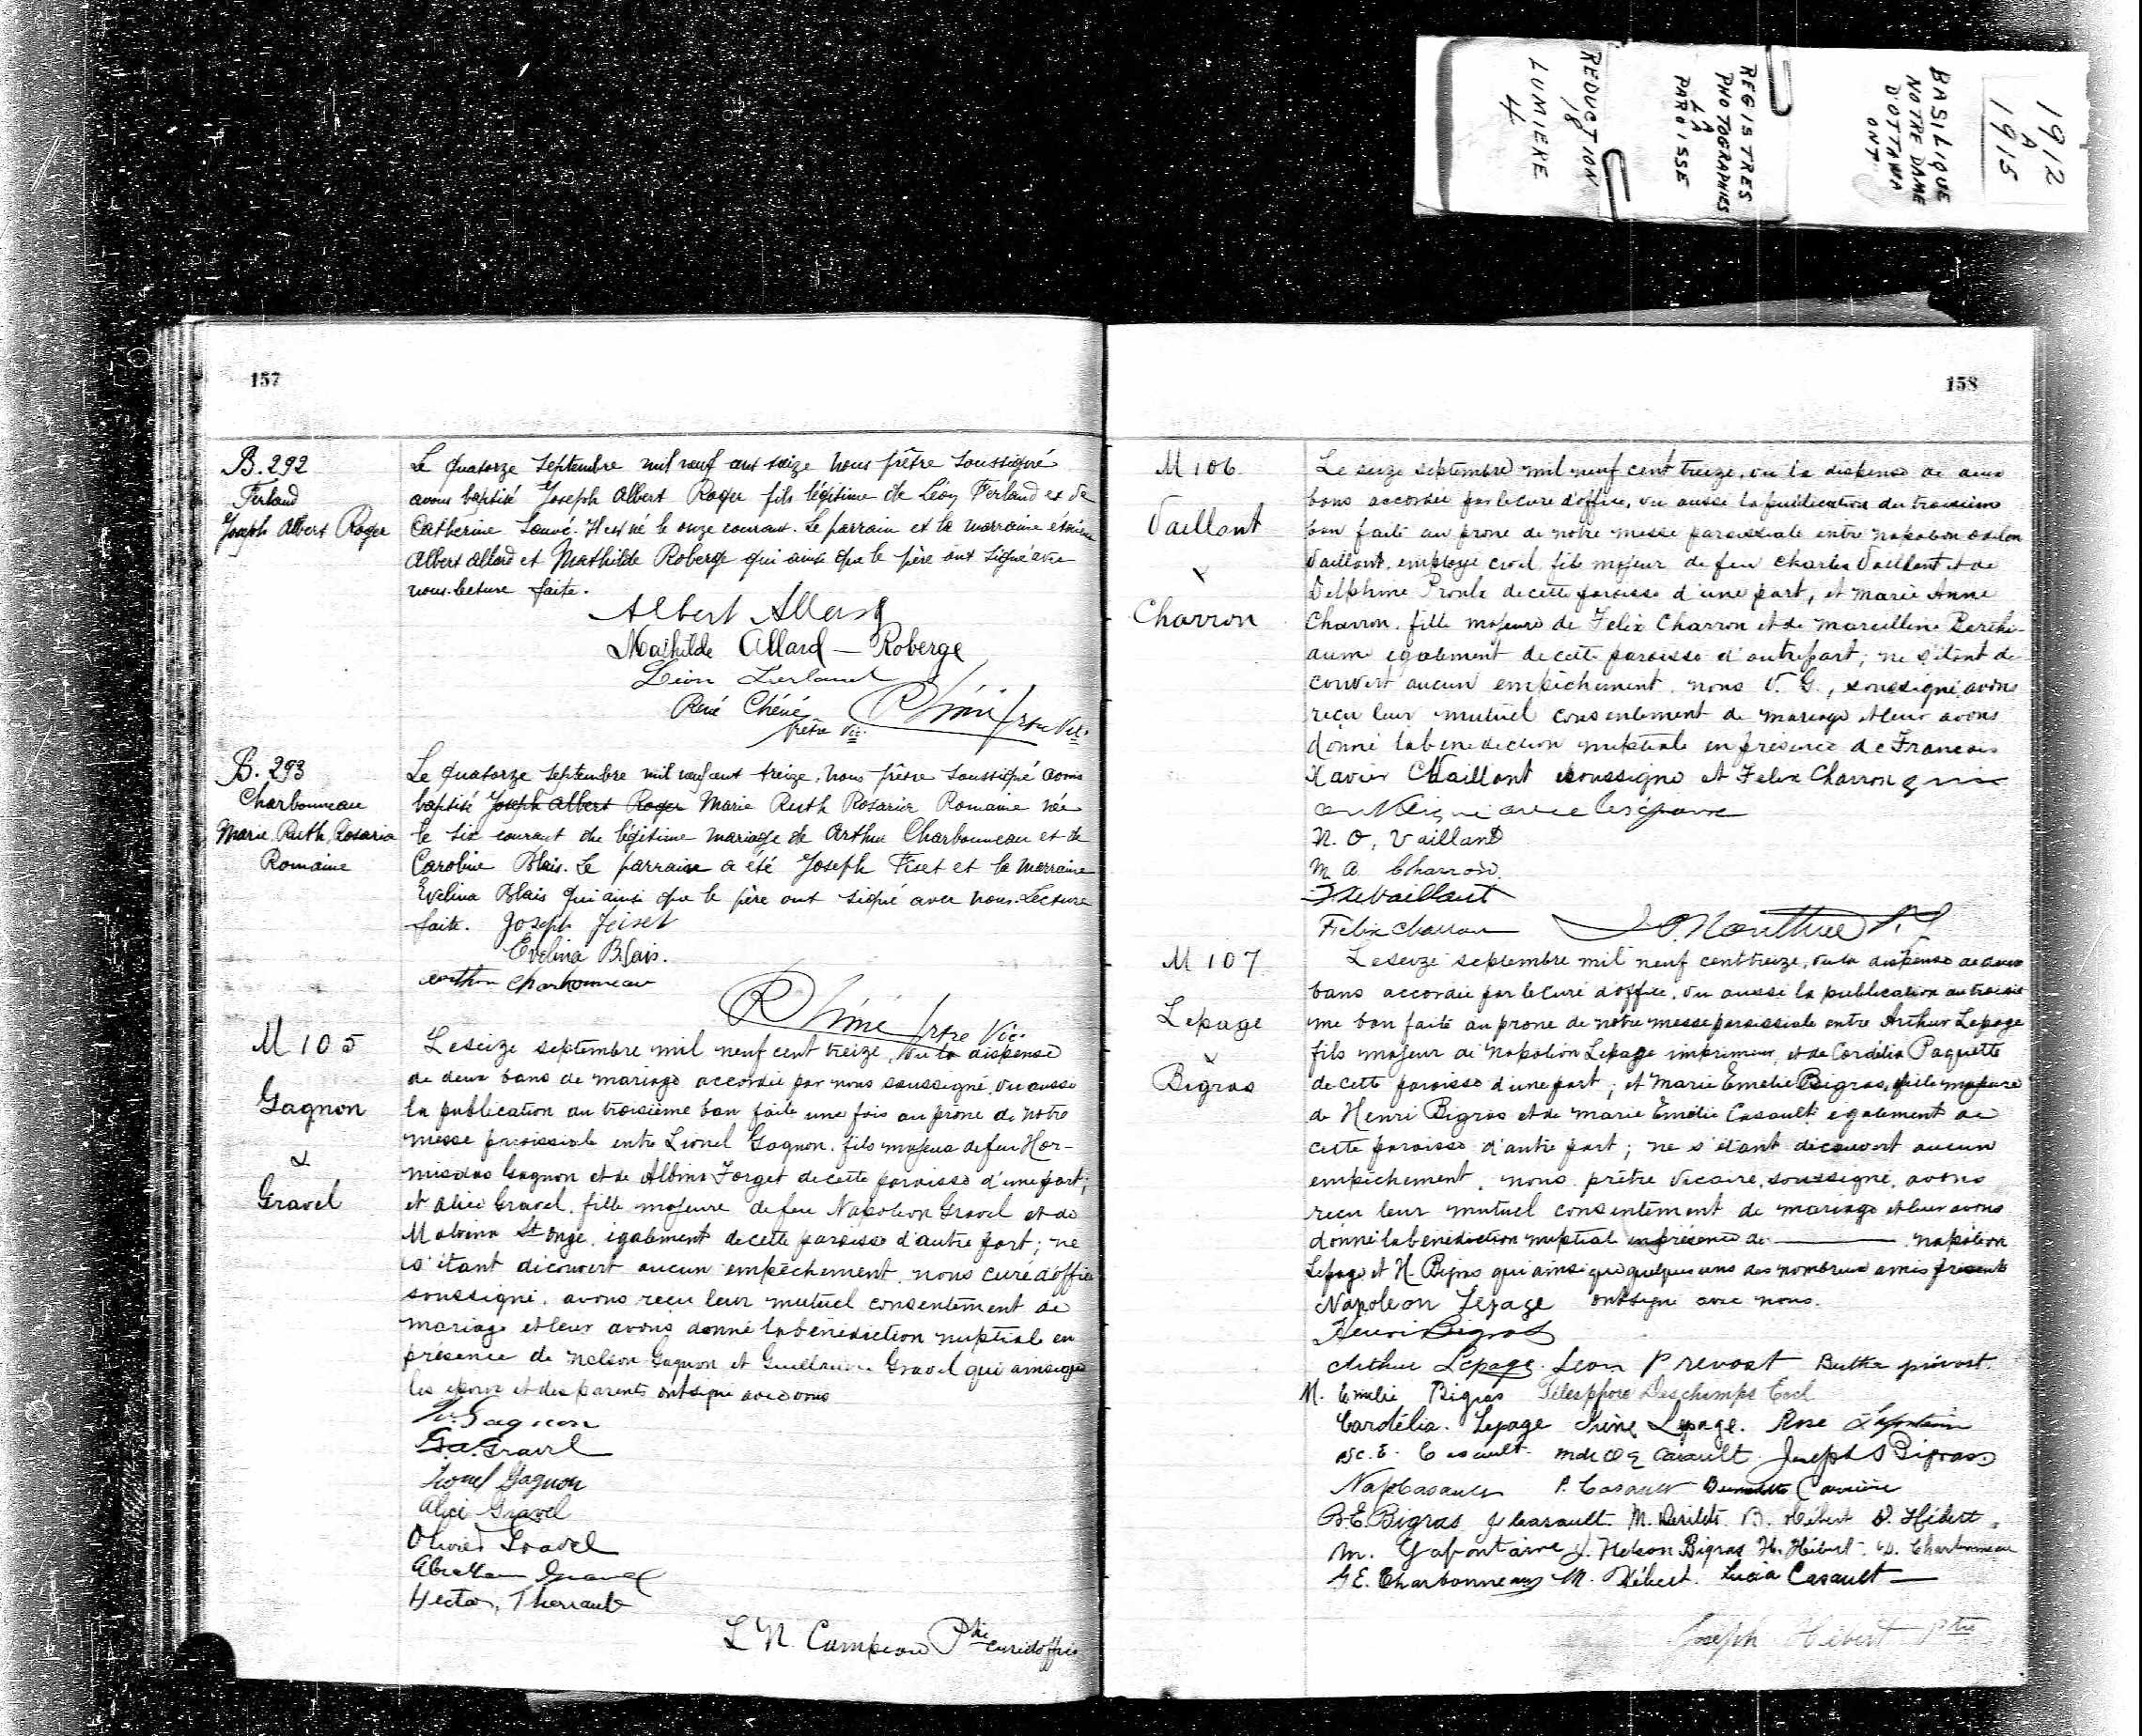 1912
A
1915
BASILIQUE
NOTRE DAME
D'OTTAWA
ONT
REGISTRES
PHOTOGRAPHIES
A
LA
PAROISSE
REDUCTION
18
LUMIERE
4
157
B. 292
Ferland
Joseph Albert Roger
Le quatorze septembre mil neuf cent treize nous prêtre soussigné
avons baptisé Joseph Albert Roger fils légitime de Léon Ferland et de
Catherine Sauvé. Il est né le onze courant. Le parrain et la marraine étaient
Albert Allard et Mathilde Roberge qui ainsi que le père ont signé avec
nous. Lecture faite.
Albert Allard
Mathilde Allard — Roberge
Léon Ferland
René Chéné
prêtre Vic.
RChéné ptre Vic.
B. 293
Charbonneau
Marie Ruth Rosaria
Romaine
Le quatorze septembre mil neuf cent treize, nous prêtre soussigné avons
baptisé Joseph Albert Roger Marie Ruth Rosaria Romaine née
le six courant du légitime mariage de Arthur Charbonneau et de
Caroline Blais. Le parrain a été Joseph Fiset et la marraine
Evelina Blais qui ainsi que le père ont signé avec nous. Lecture
faite. Joseph Fiset
Evelina Blais.
Arthur Charbonneau
RChéné ptre Vic.
M 105
Gagnon
&
Gravel
Le seize septembre mil neuf cent treize, vu la dispense
de deux bans de mariage accordée par nous soussigné, vu aussi
la publication du troisième ban faite une fois au prone de notre
messe paroissiale entre Lionel Gagnon, fils majeur de feu Hor-
misdas Gagnon et de Albina Forget de cette paroisse d'une part;
et Alice Gravel, fille majeure de feu Napoléon Gravel et de
Malvina St Onge, également de cette paroisse d'autre part; ne
s'étant découvert aucun empêchement, nous curé d'office
soussigné, avons reçu leur mutuel consentement de
mariage et leur avons donné la bénédiction nuptial en
présence de Nelson Gagnon et Guillaume Gravel qui ainsi que
les époux et des parents ont signé avec nous
N. Gagnon
G.A. Gravel
Lionel Gagnon
Alice Gravel
Olivier Gravel
Abraham Gravel
Hector Therrault
L N Campeau Ptre curé d'office
158
M 106
Vaillant
&
Charron
Le seize septembre mil neuf cent treize, vu la dispense de deux
bans accordée par le curé d'office, vu aussi la publication du troisième
ban faite au prone de notre messe paroissiale entre Napoléon Odilon
Vaillant, employé civil, fils majeur de feu Charles Vaillant et de
Delphine Proulx de cette paroisse d'une part, et Marie Anne
Charron, fille majeure de Felix Charron et de Marcelline Berthi-
aume également de cette paroisse d'autre part; ne s'étant dé-
couvert aucun empêchement, nous V. G., soussigné avons
reçu leur mutuel consentement de mariage et leur avons
donné la bénédiction nuptiale en présence de François
Xavier Vaillant soussigné et Felix Charron qui
ont signé avec les époux
N. O. Vaillant
M. A. Charron.
F X Vaillant
Felix Charron
M 107
Lepage
&
Bigras
Le seize septembre mil neuf cent treize, vu la dispense de deux
bans accordée par le curé d'office, vu aussi la publication du troisiè
me ban faite au prone de notre messe paroissiale entre Arthur Lepage
fils majeur de Napoléon Lepage imprimeur, et de Cordélia Paquette
de cette paroisse d'une part; et Marie Emelie Bigras, fille majeure
de Henri Bigras et de Marie Emélie Casault également de
cette paroisse d'autre part; ne s'étant découvert aucun
empêchement, nous prêtre vicaire, soussigné, avons
reçu leur mutuel consentement de mariage et leur avons
donné la bénédiction nuptial en présence de ——— Napoléon
Lepage et H. Bigras qui ainsi que quelques uns des nombreux amis présents
Napoleon Lepage ont signé avec nous.
Henri Bigras
Arthur Lepage. Leon Prevost Bertha prévost.
M. Emelie Bigras Télesphore Deschamps
Cordélia Lepage Irène Lepage. Rose Lafontaine
E. Casault Mde O E Casault Joseph Bigras
Nap Casault P. Casault Carrière
B.E. Bigras J Casault. M. B. Hébert D. Hébert
M. Lafontaine J. Nelson Bigras H. Hébert. D. Charbonneau
G E. Charbonneau M. Hébert. Lucia Casault —
Joseph Hébert Ptre